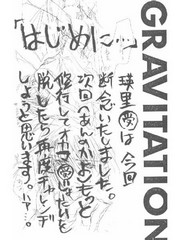 GRAVITATION
「はじめに…」
瑛里は今回
断念いたしました。
次回(あんのかよ)もっと
修行してオカマたいを
脱したら再度チャレンヂ
しようと思います。